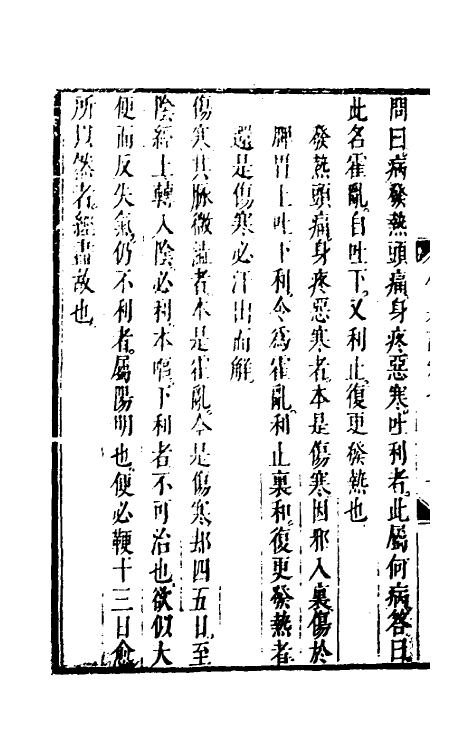 問曰病發熱頭痛身疼惡寒吐利者此屬何病答曰
此名霍亂自吐下又利止復更發熱也
發熱頭痛身疼惡寒者本是傷寒因邪入裏傷於
脾胃上吐下利令爲霍亂利止裏和復更發熱者
還是傷寒必汗出而解
傷寒其脉微濇者本是霍亂今是傷寒却四五日至
陰經上轉入陰必利本嘔下利者不可治也欲似大
便而反失氣仍不利者屬陽明也便必鞕十三日愈
所以然者經盡故也